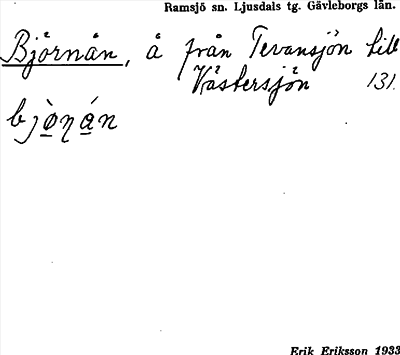 Ramsjö sn. Ljusdals tg. Gävleborgs län.
Björnån, å från Tevansjön till
Västersjön 131.
bjø̀ṇán
Erik Eriksson 1933